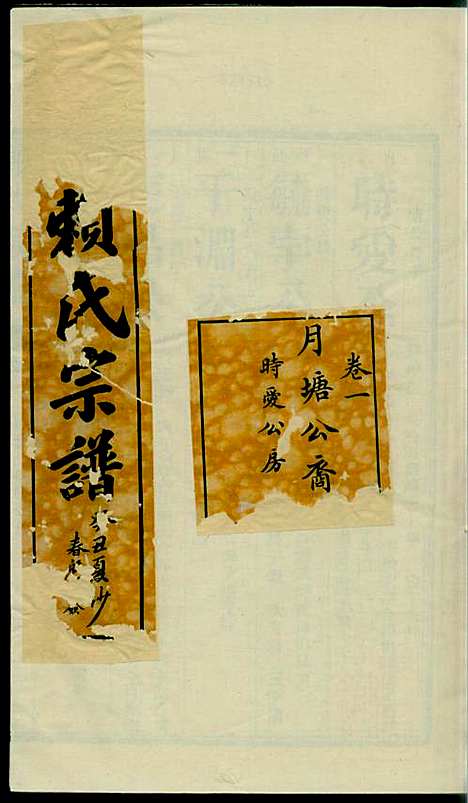 卷一
月塘公裔
時愛公房
賴氏宗譜
癸丑夏
春